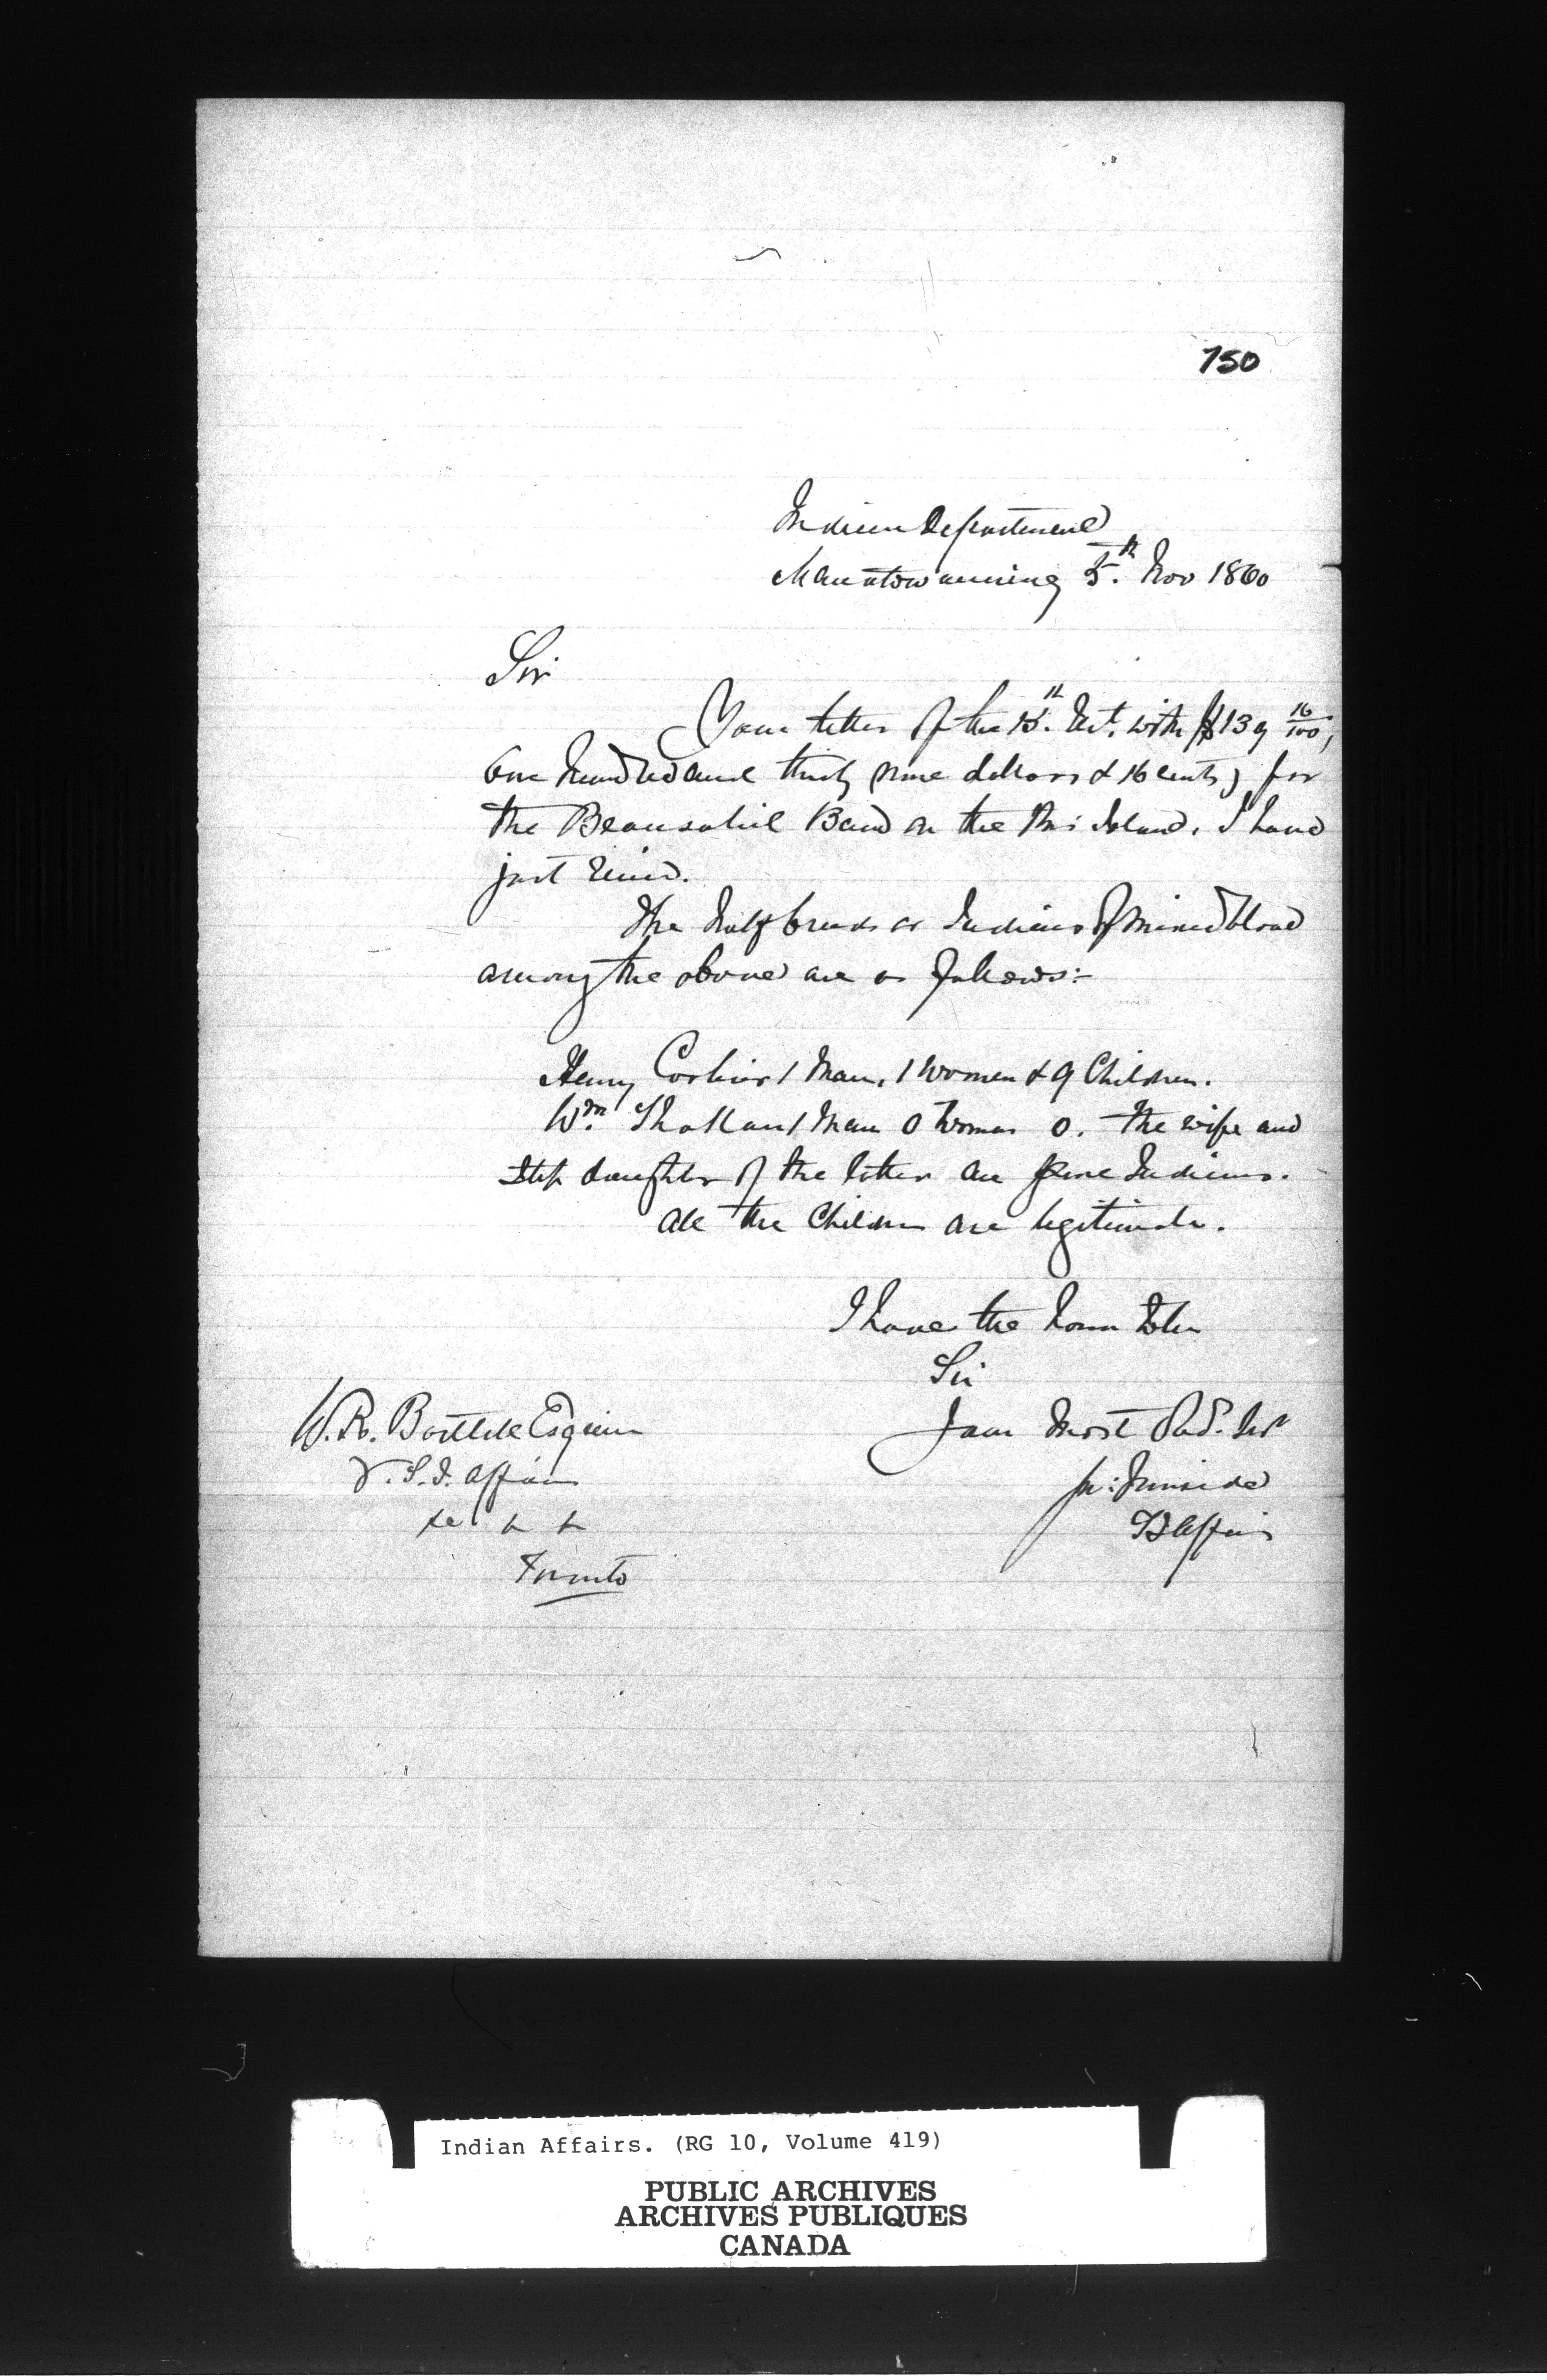 750
Indian Department
Manitowanning 5.th Nov 1860
Sir
Your letter of the 15.th Ult. with $139 16/100,
One hundred and thirty nine dollars & 16 cents, for
the Beausoliel Band on the Xn: Island, I have
just recied.
The half breeds or Indians of mixed blood
among the above are as follows:-
Henry Corbier 1 Man, 1 Women & 9 Children.
Wm. 1 Man 0 Woman 0. The wife and
Step daughter of the latter are pure Indians.
All the Children are legitimate.
I have the honor to be
Sir
Your Most Obd. Svt
Ironside
S I Affairs
W.R. Bartlett Esquire
V.S.I. Affairs
Toronto
Indian Affairs. (RG 10, Volume 419)
PUBLIC ARCHIVES
ARCHIVES PUBLIQUES
CANADA